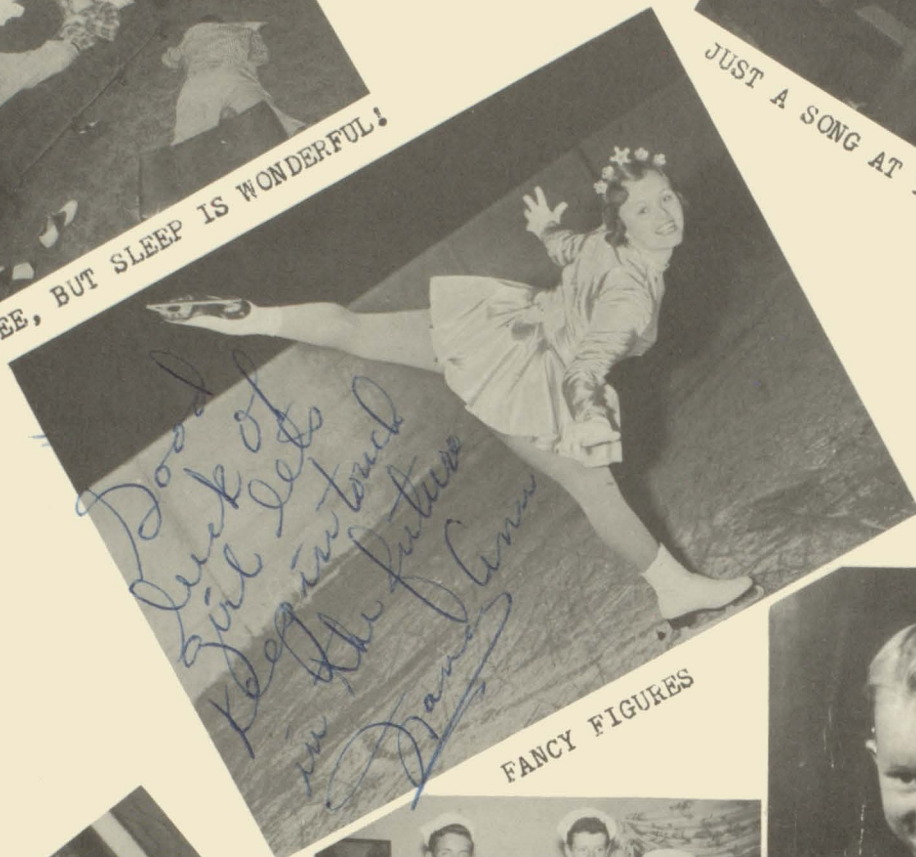 EE, BUT SLEEP IS WONDERFUL!
JUST A SONG AT
Good
luck ol
girl lets
keep in touch
in the future
Ann
FANCY FIGURES